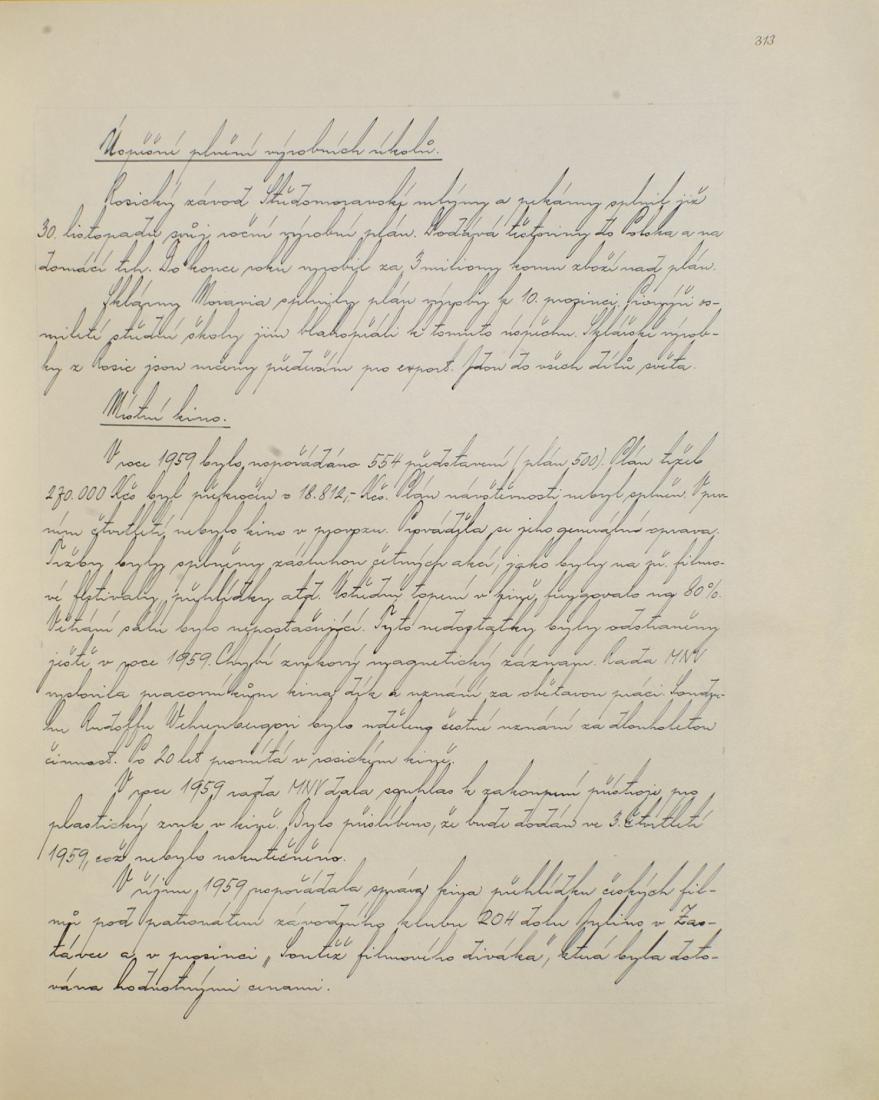 313
Úspěšné plnění výrobních úkolů.
Rosický závod Středomoravské mlýny a pekárny splnil již
30. listopadu svůj roční výrobní plán. Dodává těstoviny do Polska a na
domácí trh. Do konce roku vyrobil za 3 miliony korun zboží nad plán.
Sklárny Moravia splnily plán výroby k 10. prosinci. Pionýři os-
mileté střední školy jim blahopřáli k tomuto úspěchu. Sklářské výrob-
ky z Rosic jsou určeny především pro export. Jdou do všech dílů světa.
Místní kino.
V roce 1959 bylo uspořádáno 554 představení (plán 500). Plán tržeb
270.000 Kčs byl překročen o 18.812,- Kčs. Plán návštěvnosti nebyl splněn. V prv-
ním čtvrtletí nebylo kino v provozu. Prováděla se jeho generální oprava.
Tržby byly splněny zásluhou četných akcí, jako byly na př. filmo-
vé festivaly, přehlídky atd. Ústřední topení v kině fungovalo na 80%.
Větrání sálu bylo nepostačující. Tyto nedostatky byly odstraněny
ještě v roce 1959. Chybí zvukový magnetický záznam. Rada MNV
vyslovila pracovníkům kina dík a uznání za obětavou práci. Soudru-
hu Rudolfu Vehrenbergovi bylo uděleno čestné uznání za dlouholetou
činnost. Po 20 let promítá v rosickém kině.
V roce 1959 rada MNV dala souhlas k zakoupení přístroje pro
plastický zvuk v kině. Bylo přislíbeno, že bude dodán ve 3. čtvrtletí
1959, což nebylo uskutečněno.
V říjnu 1959 uspořádala správa kina přehlídku českých fil-
mů pod patronátem závodního klubu 204 dolu Julius v Zas-
távce a v prosinci „Soutěž filmového diváka", která byla doto-
vána hodnotnými cenami.